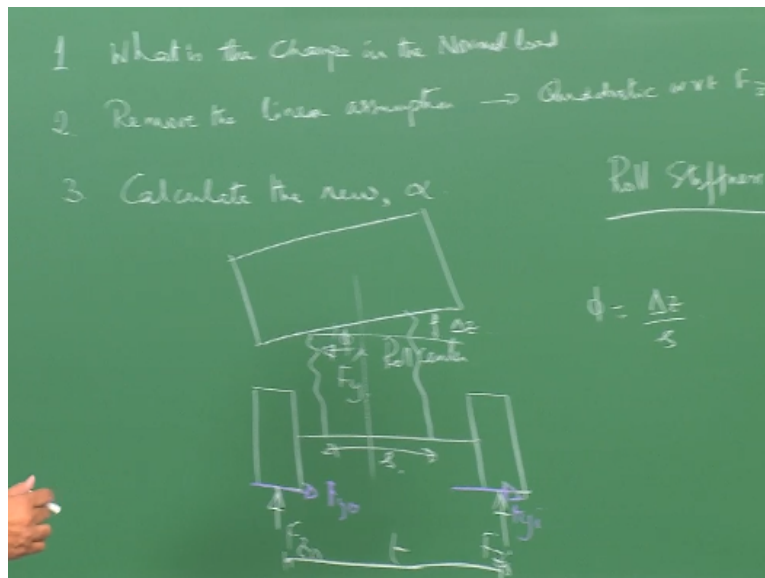 1 What is the Change in the Normal load
2. Remove the linear assumption → Quadratic wrt Fz
3. Calculate the new, α
Roll Stiffness
ϕ = Δz / s
Δz
Roll center
Fy
s
Fyo
Fyi
Fzo
t
Fzi